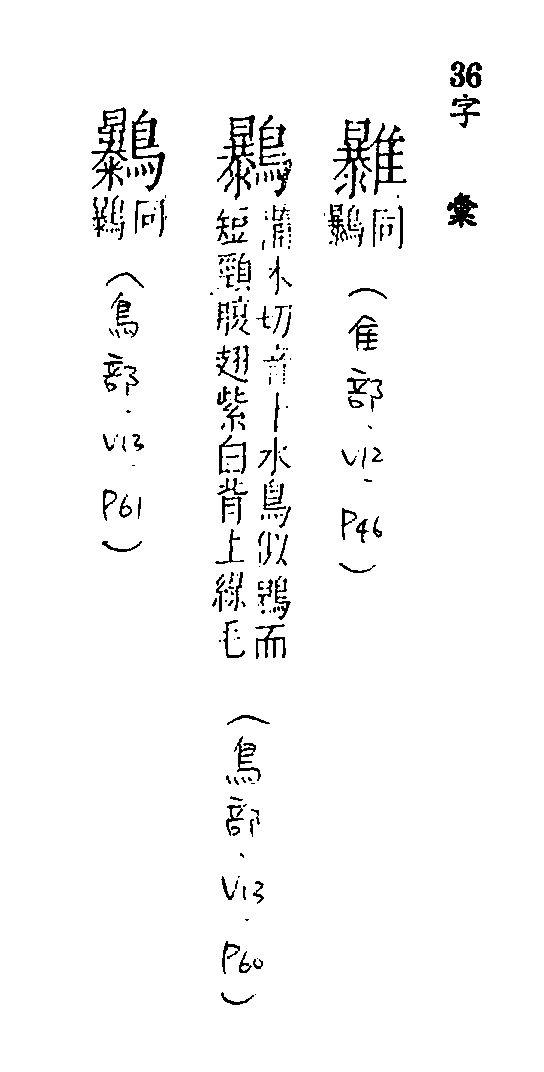 36字彙
同鸔（隹部．V12．P46）
鸔
蒲木切音卜水鳥似鶂而
短頸腹翅紫白背上綠毛
（鳥部．V13．P60）
同（鳥部．V13．P61）